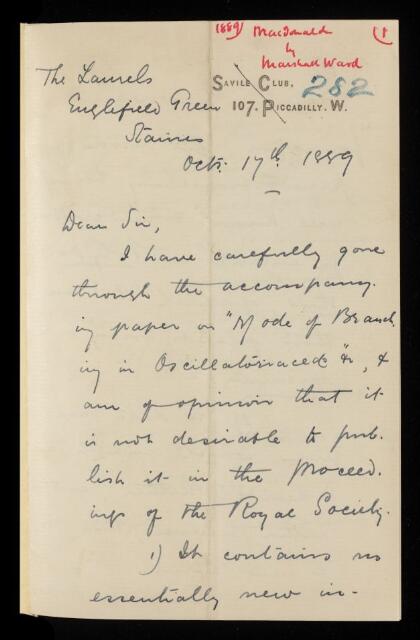 1889) MacDonald (1
by
Marshall Ward
The Laurels
SAVILE CLUB. 282
Englefield Green 107. PICCADILLY. W.
Staines
Oct: 17th 1889
Dear Sir,
I have carefully gone
through the accompany-
ing paper on "Mode of Branch-
ing in Oscillatoriaceæ" &c, &
am of opinion that it
is not desirable to pub-
lish it in the Proceed-
ings of the Royal Society.
1) It contains no
essentially new in-